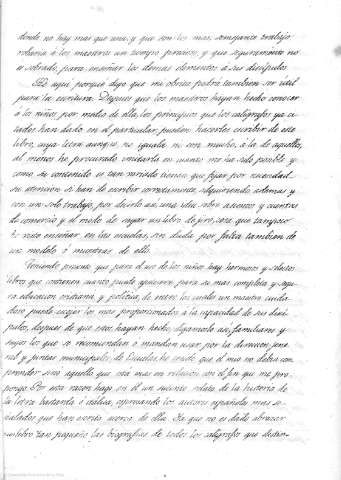 donde no hay mas que una, y que son los mas, semejante trabajo
robaria á los maestros un tiempo precioso, y que seguramente no
es sobrado, para enseñar los demas elementos á sus discípulos.
He aqui porque digo que mi obrita podrá tambien ser útil
para la escritura. Despues que los maestros hayan hecho conocer
á los niños por medio de ella, los principios que los calígrafos ya ci-
tados han dado en el particular, pueden hacerles escribir de este
libro, cuya letra aunque no iguala ni con mucho, á la de aquellos,
al menos he procurado imitarla en cuanto me ha sido posible y
como su contenido es tan variado tienen que fijar por necesidad
su atencion si han de escribir correctamente, adquiriendo ademas y
con un solo trabajo, por decirlo asi, una idea sobre asientos y cuentas
de comercio y el modo de llevar un libro de por, cosa que tampoco
he visto enseñar en las escuelas, sin duda por falta tambien de
un modelo ó muestras de ello.
Teniendo presente que para el uso de los niños hay hermosos y selectos
libros que contienen cuanto puede quererse para su mas completa y segu-
ra educacion cristiana y política, de entre los cuales un maestro cuida-
doso puede escoger los mas proporcionados á la capacidad de sus discí-
pulos, despues de que estos hayan hecho, digámoslo asi, familiares y
suyos los que se recomiendan ó mandan usar por la direccion gene-
ral y juntas municipales de Escuelas, he creido que el mio no debia com-
prender sino aquello que esta mas en relacion con el fin que me pro-
pongo. Por esta razon hago en él un sucinto relato de la historia de
la letra bastarda ó itálica, espresando los autores españoles mas se-
ñalados que han escrito acerca de ella. Ya que no es dado abrazar
en libro tan pequeño las biografias de todos los calígrafos que distin-